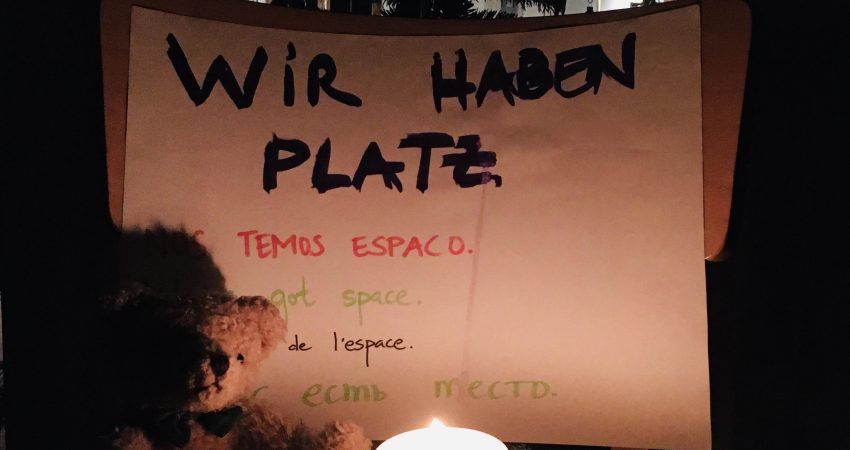 WiR HABEN
PLATZ
NOS TEMOS ESPACO.
got space.
de l'espace.
есть место.